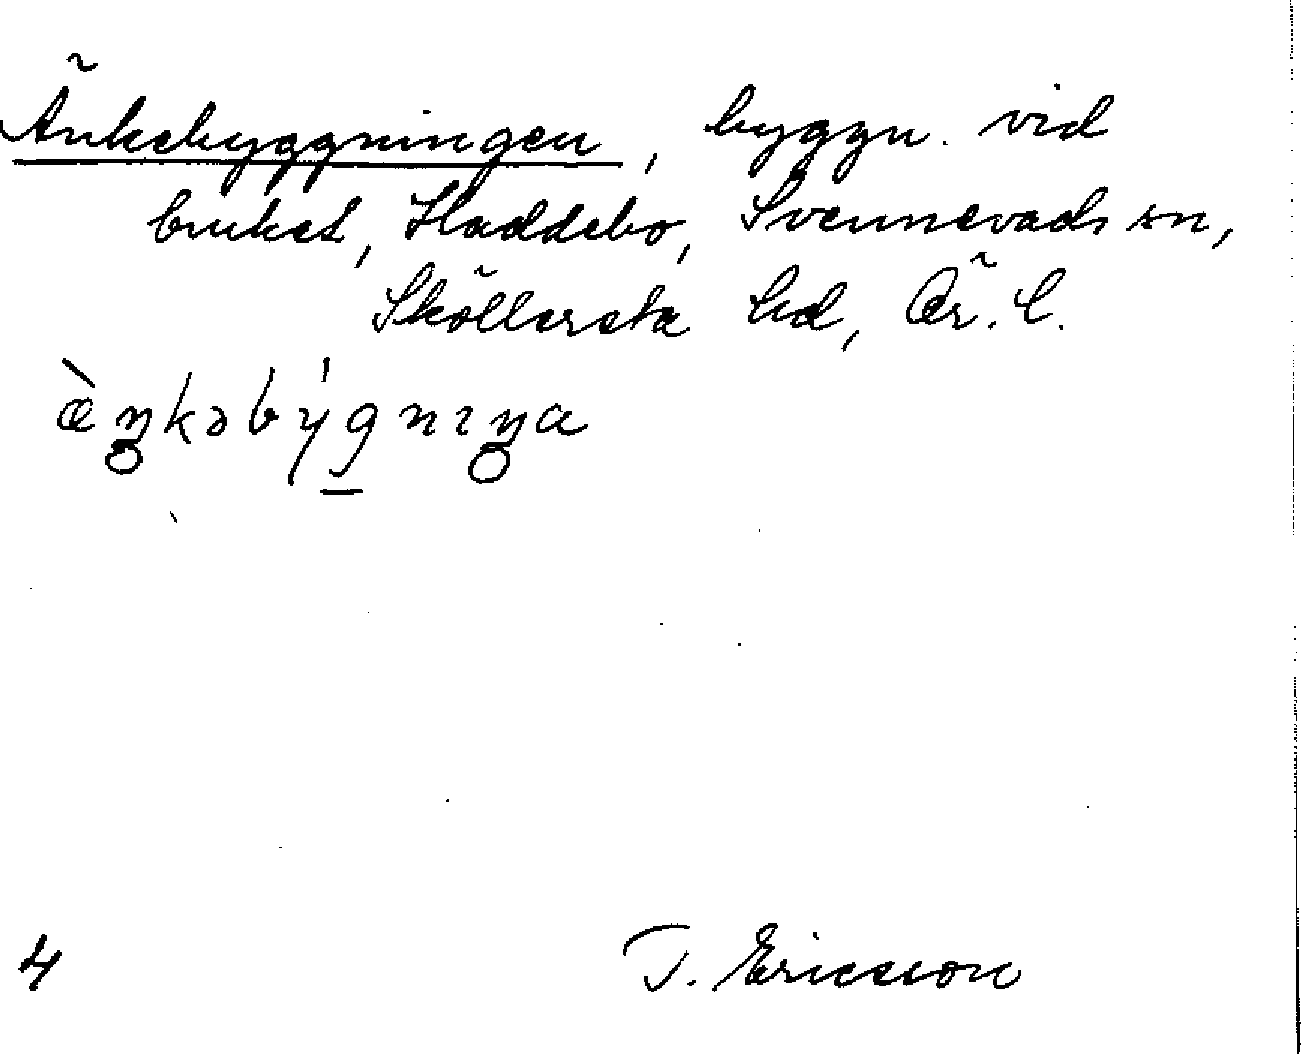 Änkebyggningen, byggn. vid
bruket, Haddebo, Svennevads sn,
Sköllersta hd, Ör. l.
æ̀ŋkəbýgnɪŋa
4
T. Ericsson